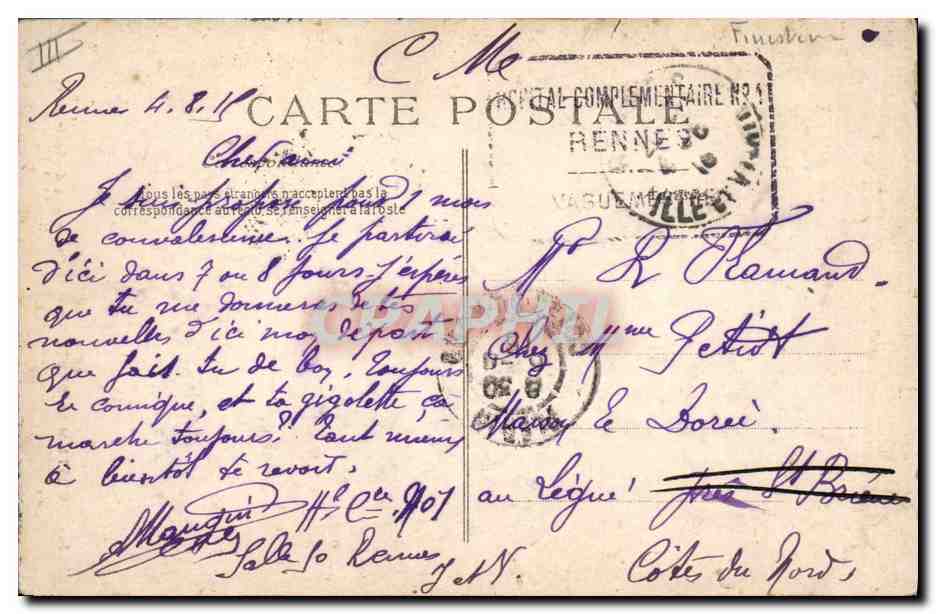 III
C M
Finistère
Rennes 4.8.15
CARTE POSTALE
HOPITAL COMPLEMENTAIRE No 1
RENNES
VAGUEMESTRE
ILLE ET VILAINE
Cher ami
Tous les pays étrangers n'acceptent pas la
correspondance au recto, se renseigner à la Poste
Je suis proposé pour 1 mois
de convalescence. Je partirai
d'ici dans 7 ou 8 jours. J'espère
que tu me donneras de tes
nouvelles d'ici mon départ
que fait tu de bon, toujours
le comique, et ta gigolette ça
marche toujours? Tant mieux
à bientôt te revoir.
Mangin
Hal Cre No 1
Salle 50 Rennes
I et V
Mr R Flamand
Chez Mme Petiot
Maison Le Dorée
au Légué près St Brieuc
Côtes du Nord
CPAPHIL